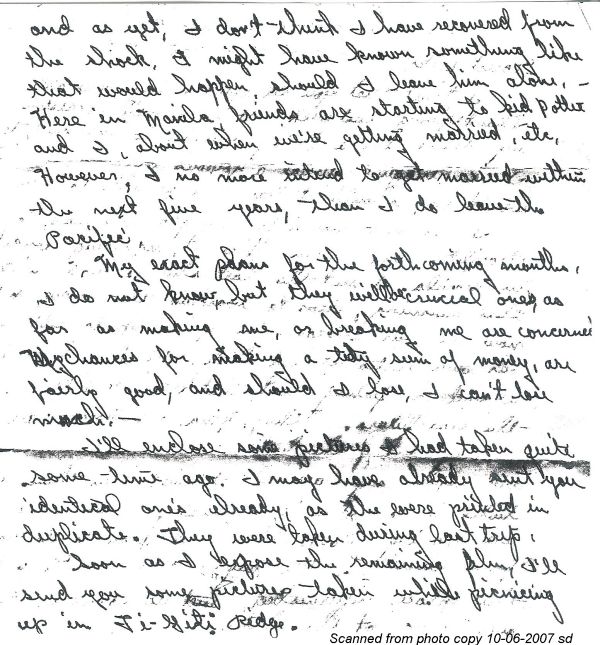 and as yet, I don't think I have recovered from
the shock. I might have known something like
that would happen, should I leave him alone, –
Here in Manila, friends are starting to kid Potter
and I, about when we're getting married, etc.
However, I no more intend to get married within
the next five years, than I do leave the
Pacific.
My exact plans for the forthcoming months,
I do not know, but, they will be crucial ones, as
far as making me, or breaking me are concerned
My chances for making a tidy sum of money, are
fairly good, and should I lose, I can't lose
much. –
I'll enclose some pictures I had taken quite
some time ago. I may have already sent you
identical ones already, as the were printed in
duplicate. They were taken during last trip.
Soon as I expose the remaining film, I'll
send you some pictures taken while picnicing
up in Ridge.
Scanned from photo copy 10-06-2007 sd